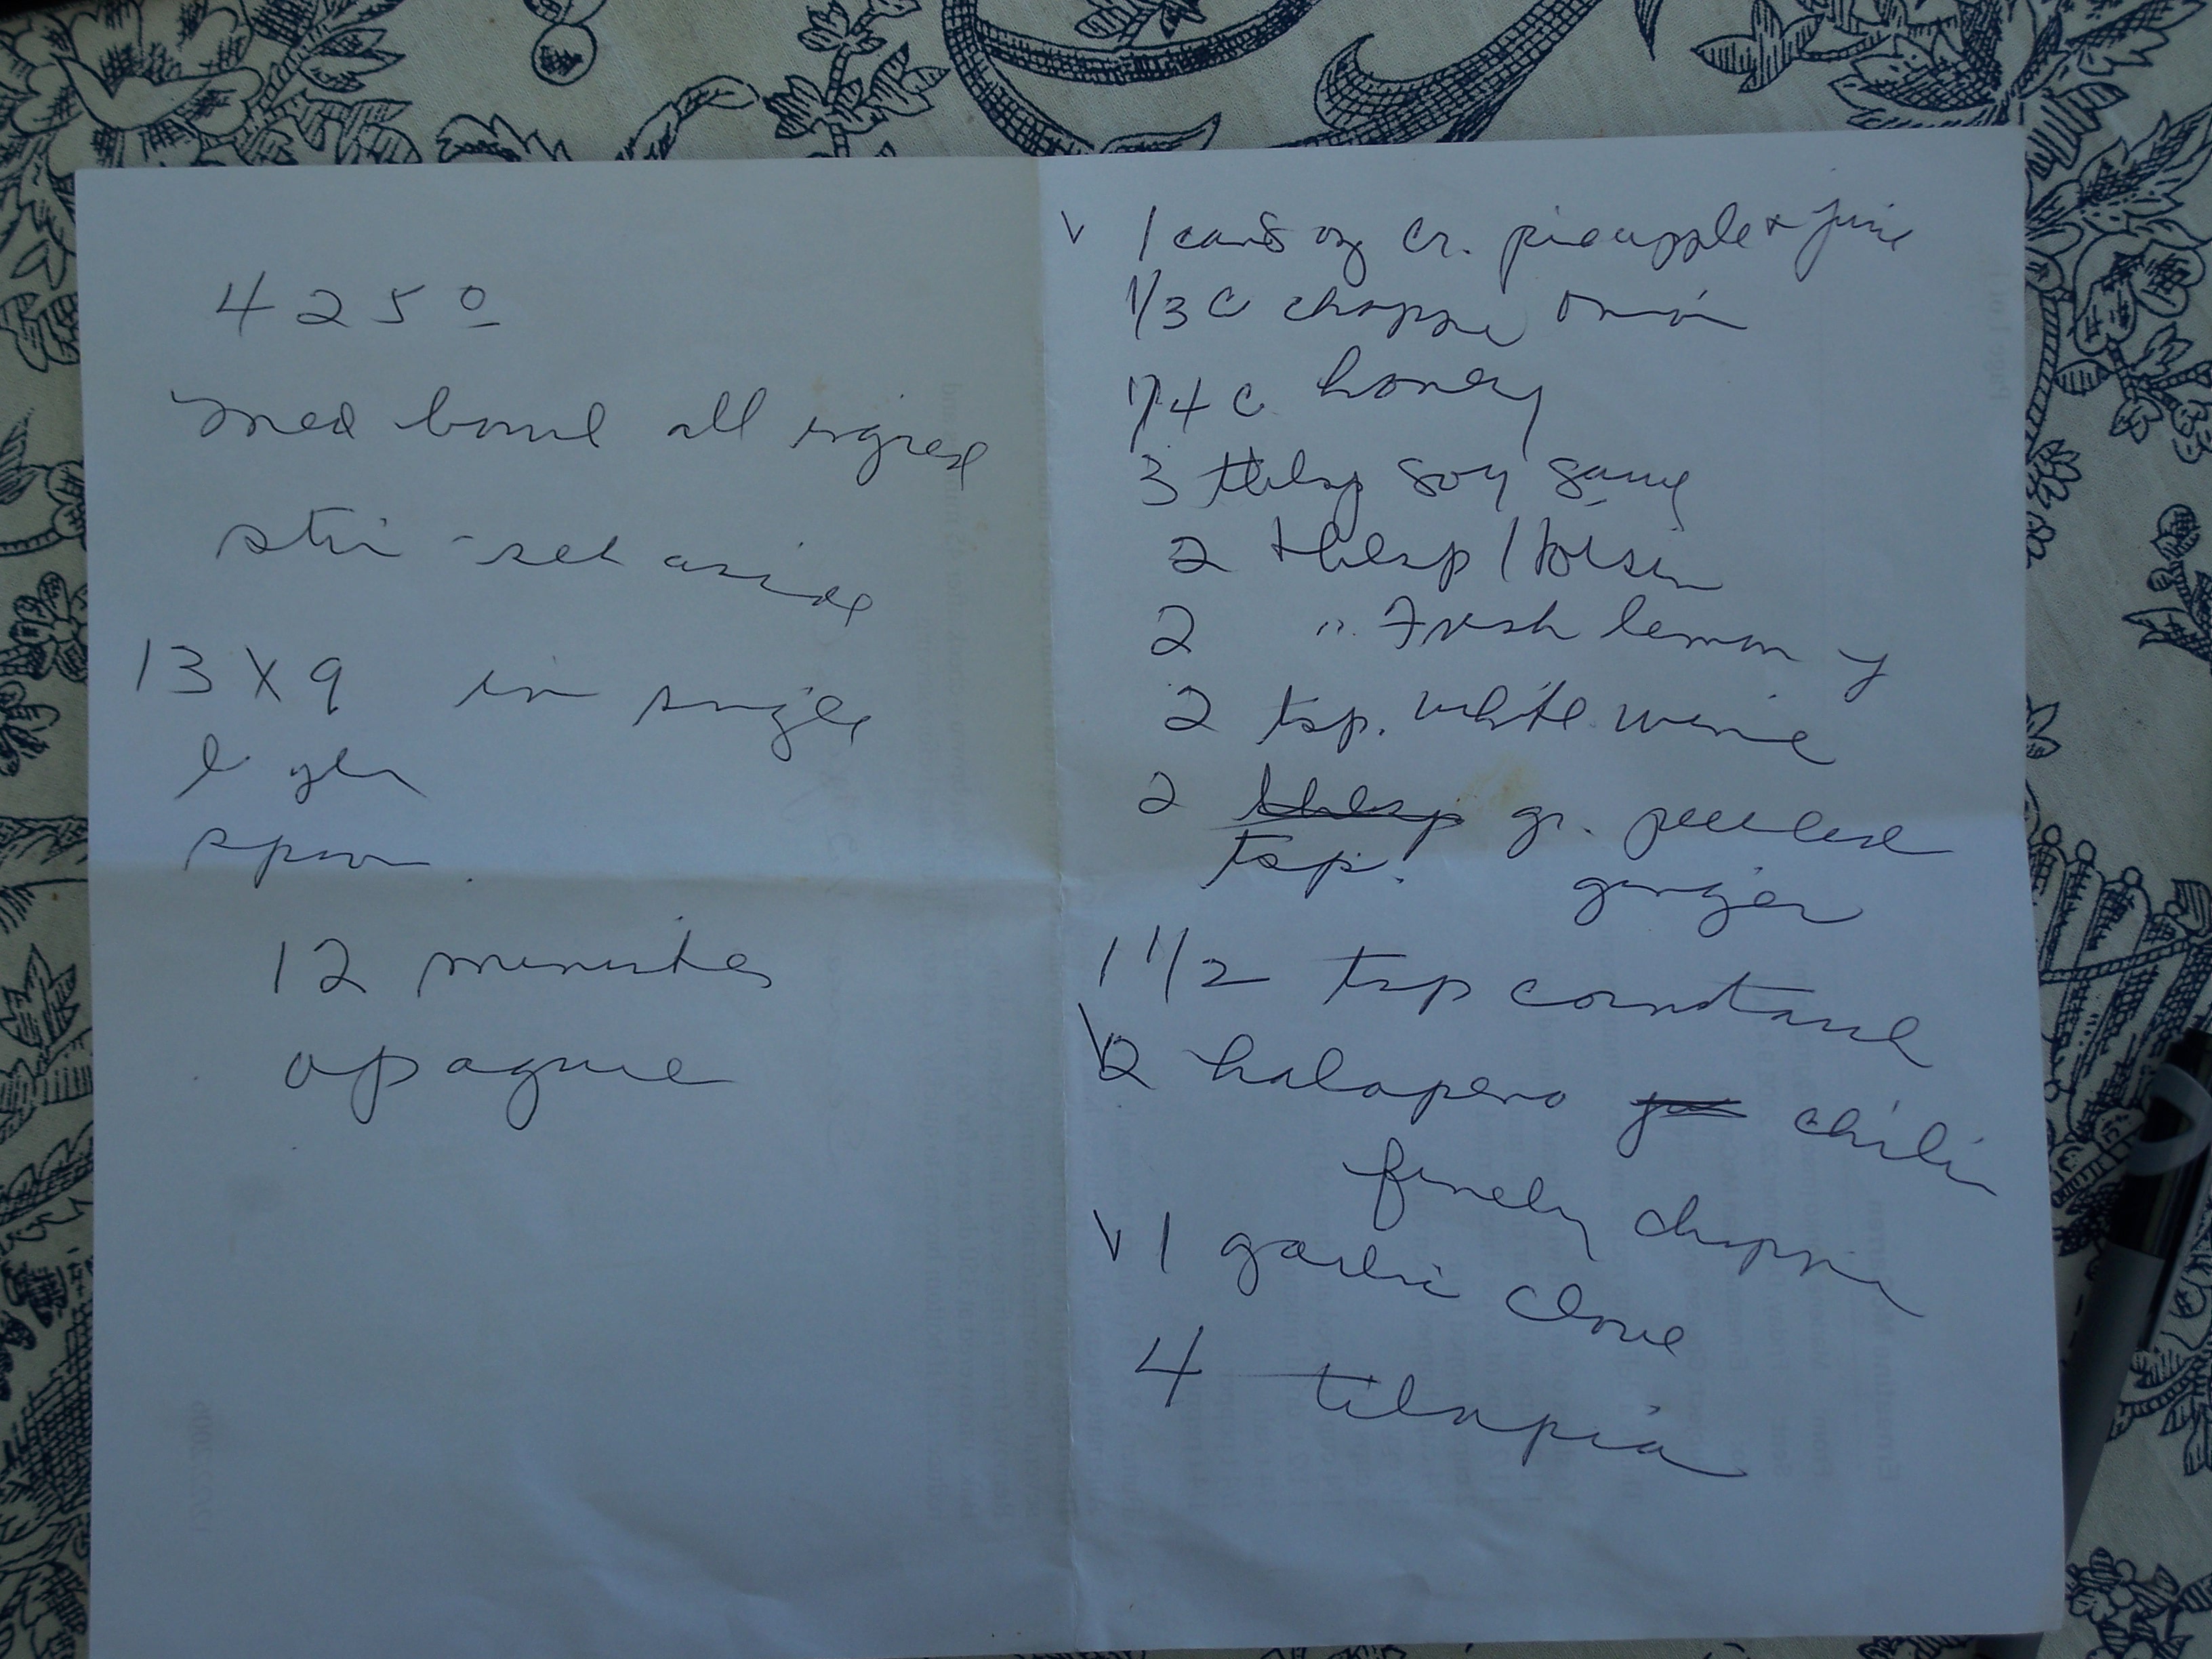 425º
Med bowl all ingred
stir - set aside
13 X 9 in single
layer
spoon.
12 minutes
opaque
√ 1 can 8 oz cr. pineapple + juice
1/3 C chopped onion
1/4 C honey
3 tblsp soy sauce
2 tblsp Hoisin
2 " Fresh lemon j
2 tsp. white wine
2 tblsp gr. peeled
tsp. ginger
1 1/2 tsp cornstarch
\ 2 halapeno chili
finely chopped
√ 1 garlic clove
4 tilapia